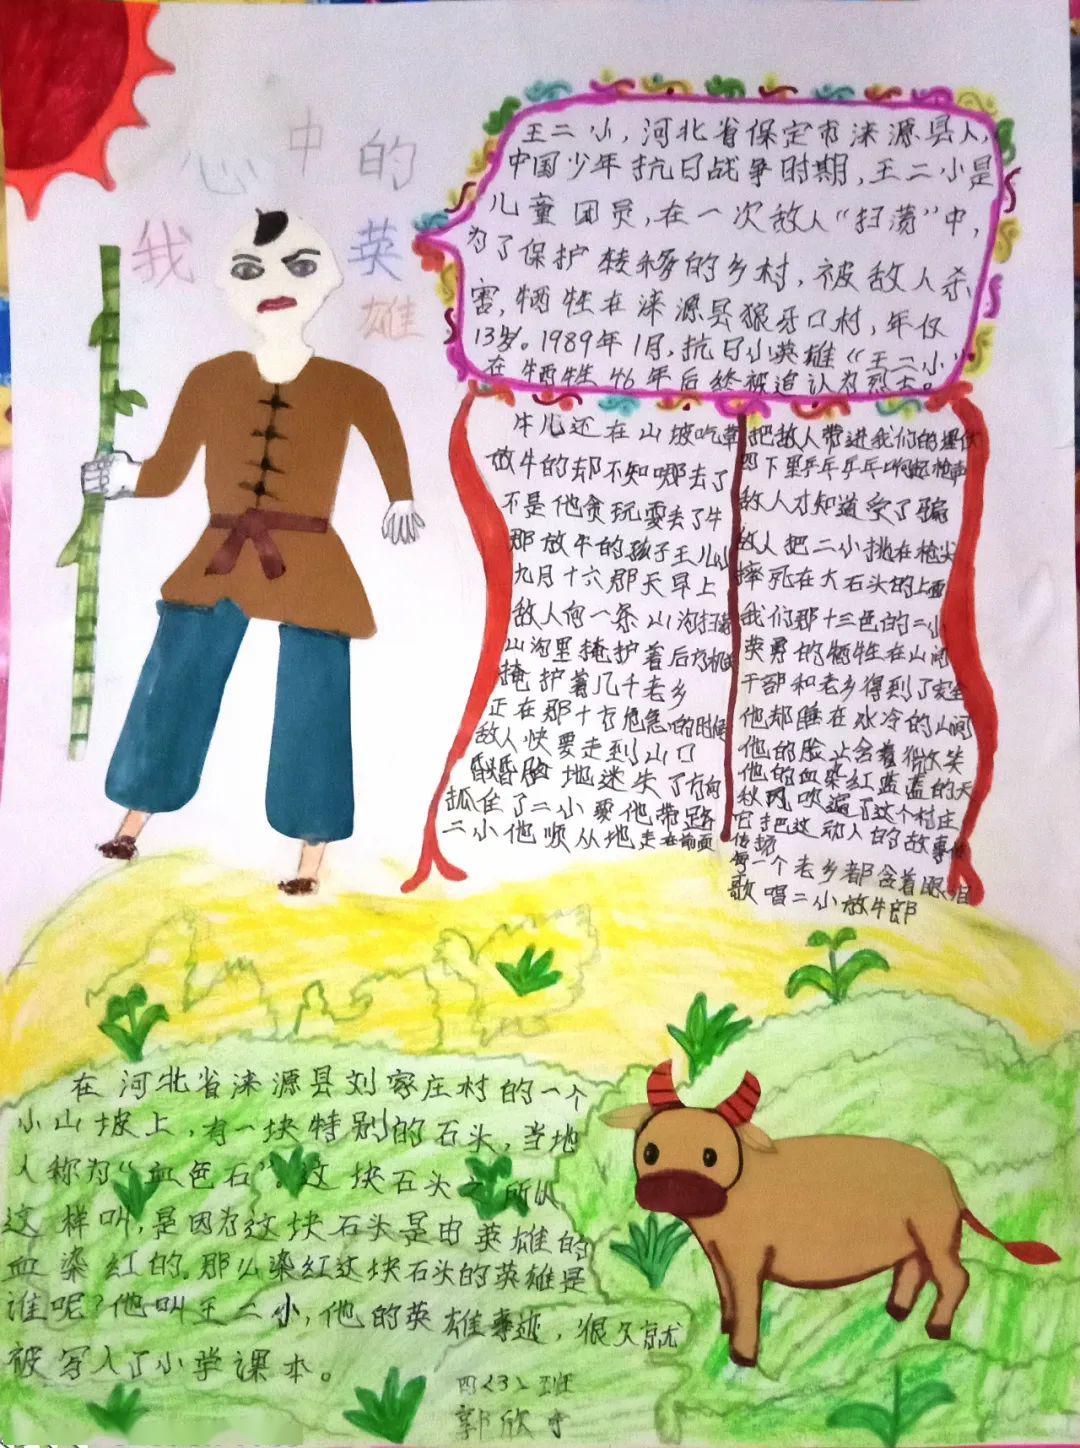 心中的
我 英
雄
王二小，河北省保定市涞源县人，
中国少年抗日战争时期，王二小是
儿童团员，在一次敌人“扫荡”中，
为了保护转移的乡村，被敌人杀
害，牺牲在涞源县狼牙口村，年仅
13岁。1989年1月，抗日小英雄《王二小》
在牺牲46年后终被追认为烈士。
牛儿还在山坡吃草
放牛的却不知哪去了
不是他贪玩耍丢了牛
那放牛的孩子王儿小
九月十六那天早上
敌人向一条山沟扫荡
山沟里掩护着后方机关
掩护着几千老乡
正在那十方危急的时候
敌人快要走到山口
昏昏 地迷失了方向
抓住了二小要他带路
二小他顺从地走在前面
把敌人带进我们的埋伏
四下里乒乓乒乓响起枪声
敌人才知道受了骗
敌人把二小挑在枪尖
摔死在大石头的上面
我们那十三色的二小
英勇的牺牲在山间
干部和老乡得到了安全
他却睡在水冷的山间
他的脸上含着微笑
他的血染红蓝蓝的天
秋风吹遍了这个村庄
它把这动人的故事传
传扬
每一个老乡都含着眼泪
歌唱二小放牛郎
在河北省涞源县刘家庄村的一个
小山坡上，有一块特别的石头，当地
人称为“血色石”。这块石头之所以
这样叫，是因为这块石头是由英雄的
血染红的。那么染红这块石头的英雄是
谁呢？他叫王二小，他的英雄事迹，很久就
被写入了小学课本。
四〈3〉班
郭欣